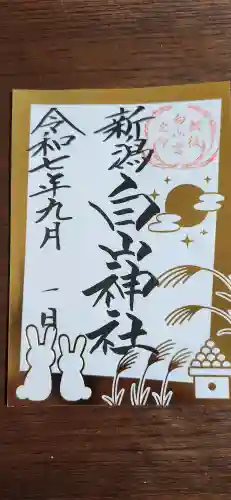 新潟
白山神社
令和七年九月一日